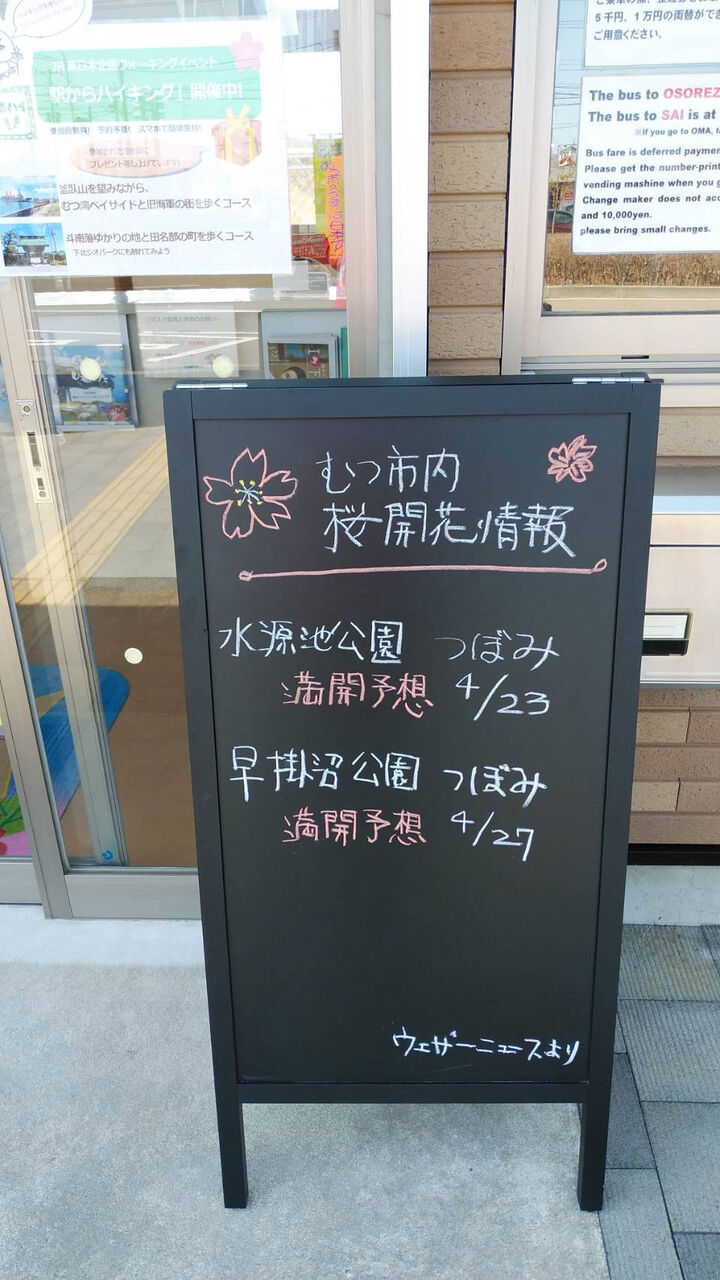 JR 東日本企画ウォーキングイベント
駅からハイキング」開催中!
参加費無料! 予約不要! スマホで簡単受付!
プレゼント差し上げています!
釜臥山を望みながら、
むつ湾ベイサイドと旧海軍の街を歩くコース
斗南藩ゆかりの地と田名部の町を歩くコース
下北ジオパークにも触れてみよう
5千円、1万円の両替ができ
ご用意ください。
The bus to OSOREZ
The bus to SAI is at
※If you go to OMA, ta
Bus fare is deferred paymen
Please get the number-print
vending mashine when you g
Change maker does not acc
and 10,000yen.
please bring small changes.
むつ市内
桜開花情報
水源池公園 つぼみ
満開予想 4/23
早掛沼公園 つぼみ
満開予想 4/27
ウェザーニュースより